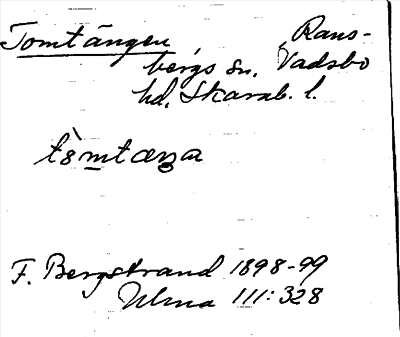 Tomtängen, Rans-
bergs sn. Vadsbo
hd. Skarab. l.
tò̀mtæŋa
F. Bergstrand 1898-99
Ulma 111:328